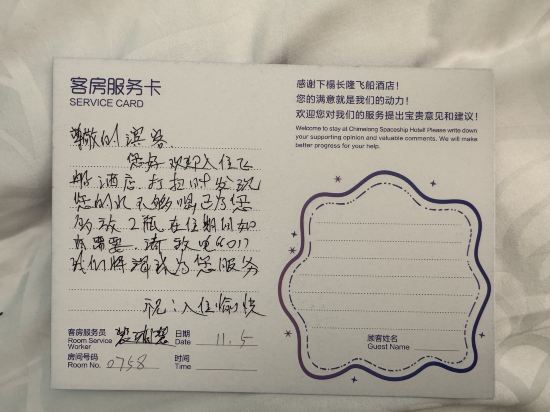 客房服务卡
SERVICE CARD
尊敬的滨客.
您好 欢迎入住飞
船酒店. 打扫时发现
您的水不够喝已为您
多放2瓶 在住期间如
有需要. 请致电6017
我们将竭诚为您服务
祝:入住愉快
客房服务员
Room Service
Worker
日期
Date
11.5
房间号码
Room No.
0758
时间
Time
感谢下榻长隆飞船酒店!
您的满意就是我们的动力!
欢迎您对我们的服务提出宝贵意见和建议!
Welcome to stay at Chimelong Spaceship Hotel! Please write down
your supporting opinion and valuable comments. We will make
better progress for your help.
顾客姓名
Guest Name